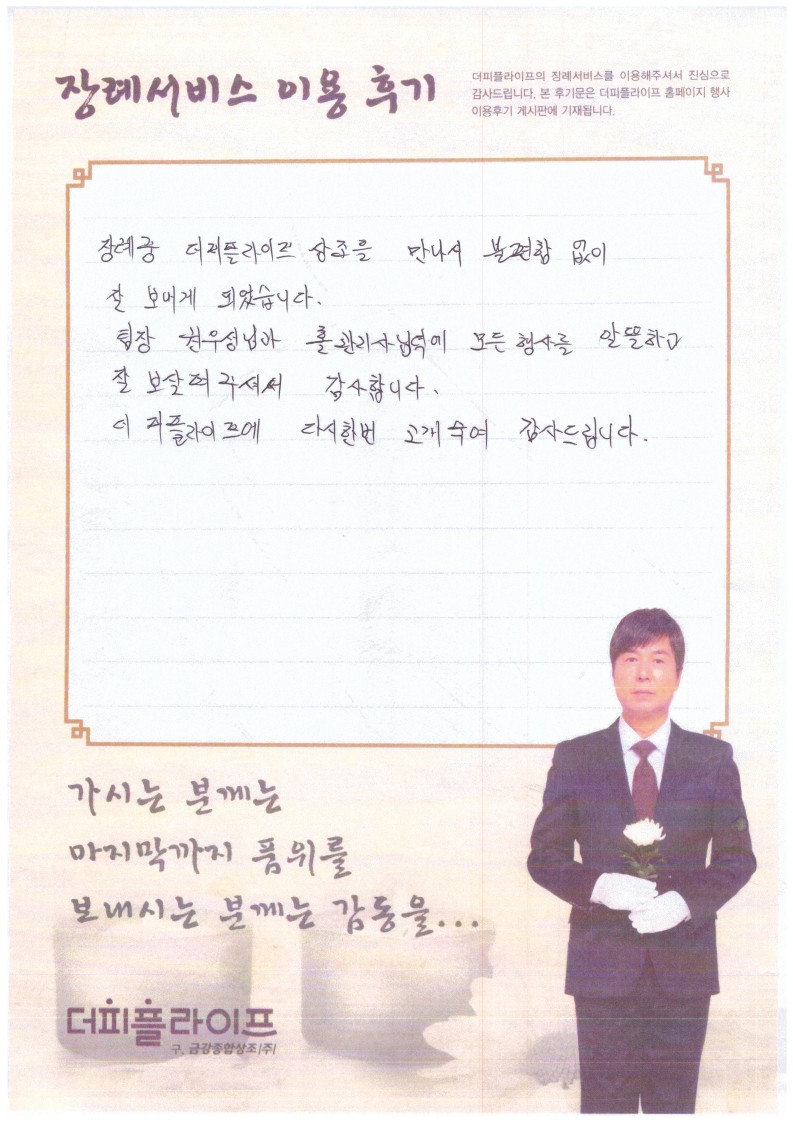 장례서비스 이용 후기
더피플라이프의 장례서비스를 이용해주셔서 진심으로
감사드립니다. 본 후기문은 더피플라이프 홈페이지 행사
이용후기 게시판에 기재됩니다.
장례중 더피플라이프 상조를 만나서 불편함 없이
잘 보내게 되었습니다.
팀장 권우성님과 홀관리사님덕에 모든행사를 알뜰하고
잘 보살펴주셔서 감사합니다.
더 피플라이프에 다시한번 고개숙여 감사드립니다.
가시는 분께는
마지막까지 품위를
보내시는 분께는 감동을...
더피플라이프
구. 금강종합상조(주)